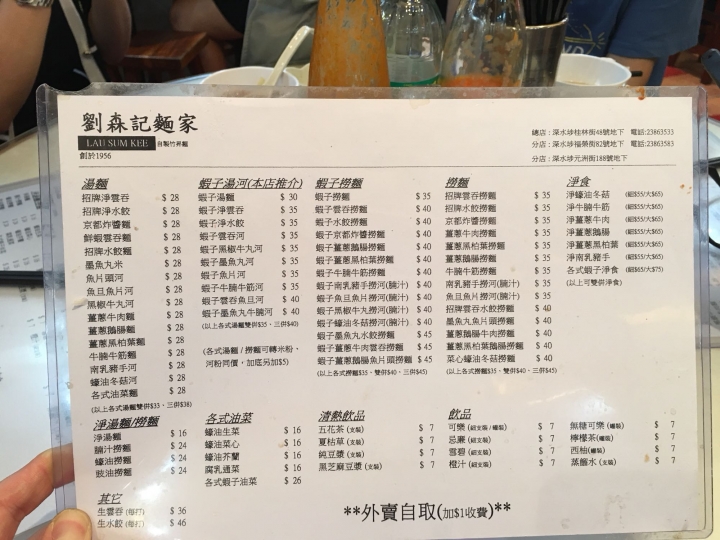 劉森記麵家
LAU SUM KEE 自製竹昇麵
創於1956
總店：深水埗桂林街48號地下 電話:23863533
分店：深水埗福榮街82號地下 電話:23863583
分店：深水埗元洲街188號地下
湯麵
招牌淨雲吞 $ 28
招牌淨水餃 $ 28
京都炸醬麵 $ 28
鮮蝦雲吞麵 $ 28
招牌水餃麵 $ 28
墨魚丸米 $ 28
魚片頭河 $ 28
魚旦魚片河 $ 28
黑椒牛丸河 $ 28
薑蔥牛肉麵 $ 28
薑蔥鵝腸麵 $ 28
薑蔥黑柏葉麵 $ 28
牛腩牛筋麵 $ 28
南乳豬手河 $ 28
蠔油冬菇河 $ 28
各式油菜麵 $ 28
(以上各式湯麵雙併$33、三併$38)
蝦子湯河(本店推介)
蝦子湯麵 $ 30
蝦子淨雲吞 $ 35
蝦子淨水餃 $ 35
蝦子雲吞河 $ 35
蝦子黑椒牛丸河 $ 35
蝦子墨魚丸河 $ 35
蝦子魚片河 $ 35
蝦子牛腩牛筋河 $ 35
蝦子雲吞魚旦河 $ 40
蝦子墨魚丸牛腩河 $ 40
(以上各式湯麵雙併$35、三併$40)
(各式湯麵 / 撈麵可轉米粉、
河粉同價，加底另加$5)
蝦子撈麵
蝦子撈麵 $ 35
蝦子雲吞撈麵 $ 40
蝦子水餃撈麵 $ 40
蝦子京都炸醬撈麵 $ 40
蝦子薑蔥鵝腸撈麵 $ 40
蝦子薑蔥黑柏葉撈麵 $ 40
蝦子牛腩牛筋撈麵 $ 40
蝦子南乳豬手撈河(腩汁) $ 40
蝦子魚旦魚片撈河(腩汁) $ 40
蝦子黑椒牛丸撈河(腩汁) $ 40
蝦子蠔油冬菇撈河(腩汁) $ 40
蝦子墨魚丸水餃撈麵 $ 45
蝦子薑蔥牛肉雲吞撈麵 $ 45
蝦子薑蔥鵝腸魚片頭撈麵 $ 45
(以上各式撈麵$35、雙併$40、三併$45)
撈麵
招牌雲吞撈麵 $ 35
招牌水餃撈麵 $ 35
京都炸醬撈麵 $ 35
薑蔥牛肉撈麵 $ 35
薑蔥黑柏葉撈麵 $ 35
薑蔥鵝腸撈麵 $ 35
牛腩牛筋撈麵 $ 35
南乳豬手撈河(腩汁) $ 35
魚旦魚片撈河(腩汁) $ 35
招牌雲吞水餃撈麵 $ 40
墨魚丸魚片頭撈麵 $ 40
薑蔥鵝腸牛肉撈麵 $ 40
薑蔥黑柏葉牛肉撈麵 $ 40
菜心蠔油冬菇撈麵 $ 40
(以上各式撈麵$35、雙併$40、三併$45)
淨食
淨蠔油冬菇 (細$55/大$65)
淨牛腩牛筋 (細$55/大$65)
淨薑蔥牛肉 (細$55/大$65)
淨薑蔥鵝腸 (細$55/大$65)
淨薑蔥黑柏葉 (細$55/大$65)
淨南乳豬手 (細$55/大$65)
各式蝦子淨食 (細$65/大$75)
(以上可雙併淨食)
淨湯麵/撈麵
淨湯麵 $ 16
腩汁撈麵 $ 24
蠔油撈麵 $ 24
豉油撈麵 $ 24
各式油菜
蠔油生菜 $ 16
蠔油菜心 $ 16
蠔油芥蘭 $ 16
腐乳通菜 $ 16
各式蝦子油菜 $ 26
清熱飲品
五花茶 (支裝) $ 7
夏枯草 (支裝) $ 7
純豆漿 (支裝) $ 7
黑芝麻豆漿 (支裝) $ 7
飲品
可樂 (細支裝 / 罐裝) $ 7
忌廉 (細支裝) $ 7
雪碧 (細支裝) $ 7
橙汁 (細支裝) $ 7
無糖可樂 (罐裝) $ 7
檸檬茶(罐裝) $ 7
西柚(罐裝) $ 7
蒸餾水 (支裝) $ 7
其它
生雲吞 (每打) $ 36
生水餃 (每打) $ 46
**外賣自取(加$1收費)**